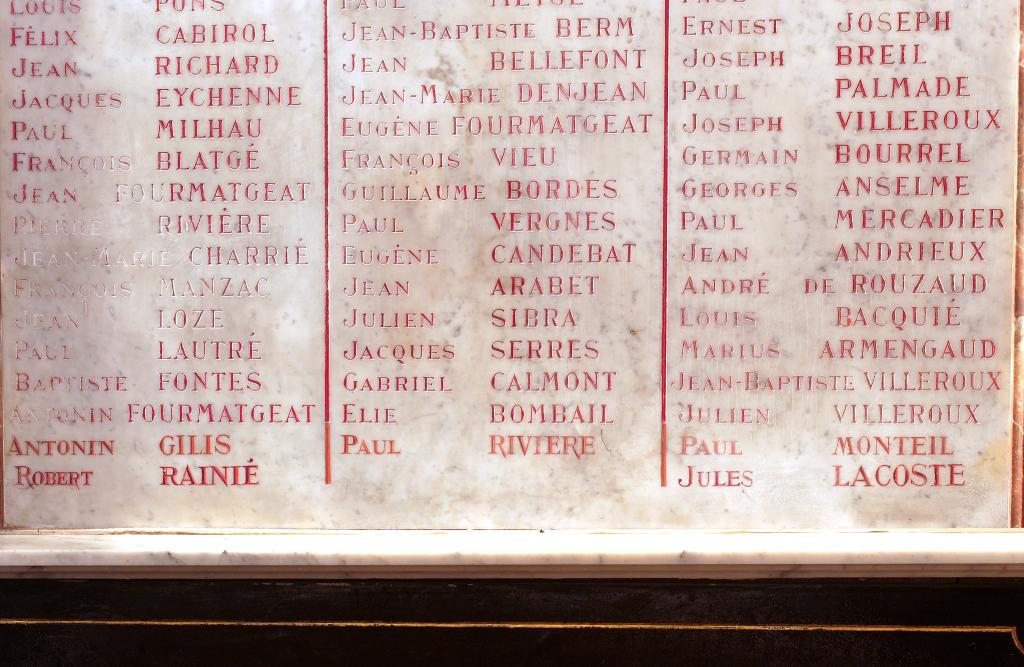 Louis PONS
Félix CABIROL
Jean RICHARD
Jacques EYCHENNE
Paul MILHAU
François BLATGÉ
Jean FOURMATGEAT
Pierre RIVIÈRE
Jean-Marie CHARRIÉ
François MANZAC
Jean LOZE
Paul LAUTRÉ
Baptiste FONTES
Antonin FOURMATGEAT
Antonin GILIS
Robert RAINIÉ
Paul
Jean-Baptiste BERM
Jean BELLEFONT
Jean-Marie DENJEAN
Eugène FOURMATGEAT
François VIEU
Guillaume BORDES
Paul VERGNES
Eugène CANDEBAT
Jean ARABET
Julien SIBRA
Jacques SERRES
Gabriel CALMONT
Elie BOMBAIL
Paul RIVIERE
Ernest JOSEPH
Joseph BREIL
Paul PALMADE
Joseph VILLEROUX
Germain BOURREL
Georges ANSELME
Paul MERCADIER
Jean ANDRIEUX
André DE ROUZAUD
Louis BACQUIÉ
Marius ARMENGAUD
Jean-Baptiste VILLEROUX
Julien VILLEROUX
Paul MONTEIL
Jules LACOSTE